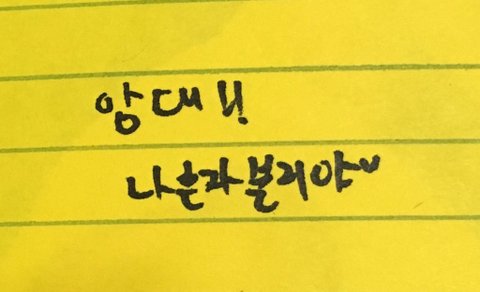 앙대!!
나혼자 볼거야♥